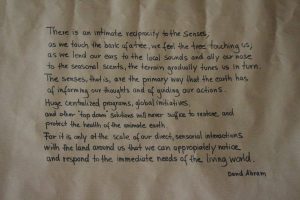 There is an intimate reciprocity to the senses,
as we touch the bark of a tree, we feel the tree touching us;
as we lend our ears to the local sounds and ally our nose
to the seasonal scents, the terrain gradually tunes us in turn.
The senses, that is, are the primary way that the earth has
of informing our thoughts and of guiding our actions.
Huge centralized programs, global initiatives,
and other 'top down' solutions will never suffice to restore and
protect the health of the animate earth.
For it is only at the scale of our direct, sensorial interactions
with the land around us that we can appropriately notice
and respond to the immediate needs of the living world.
David Abram